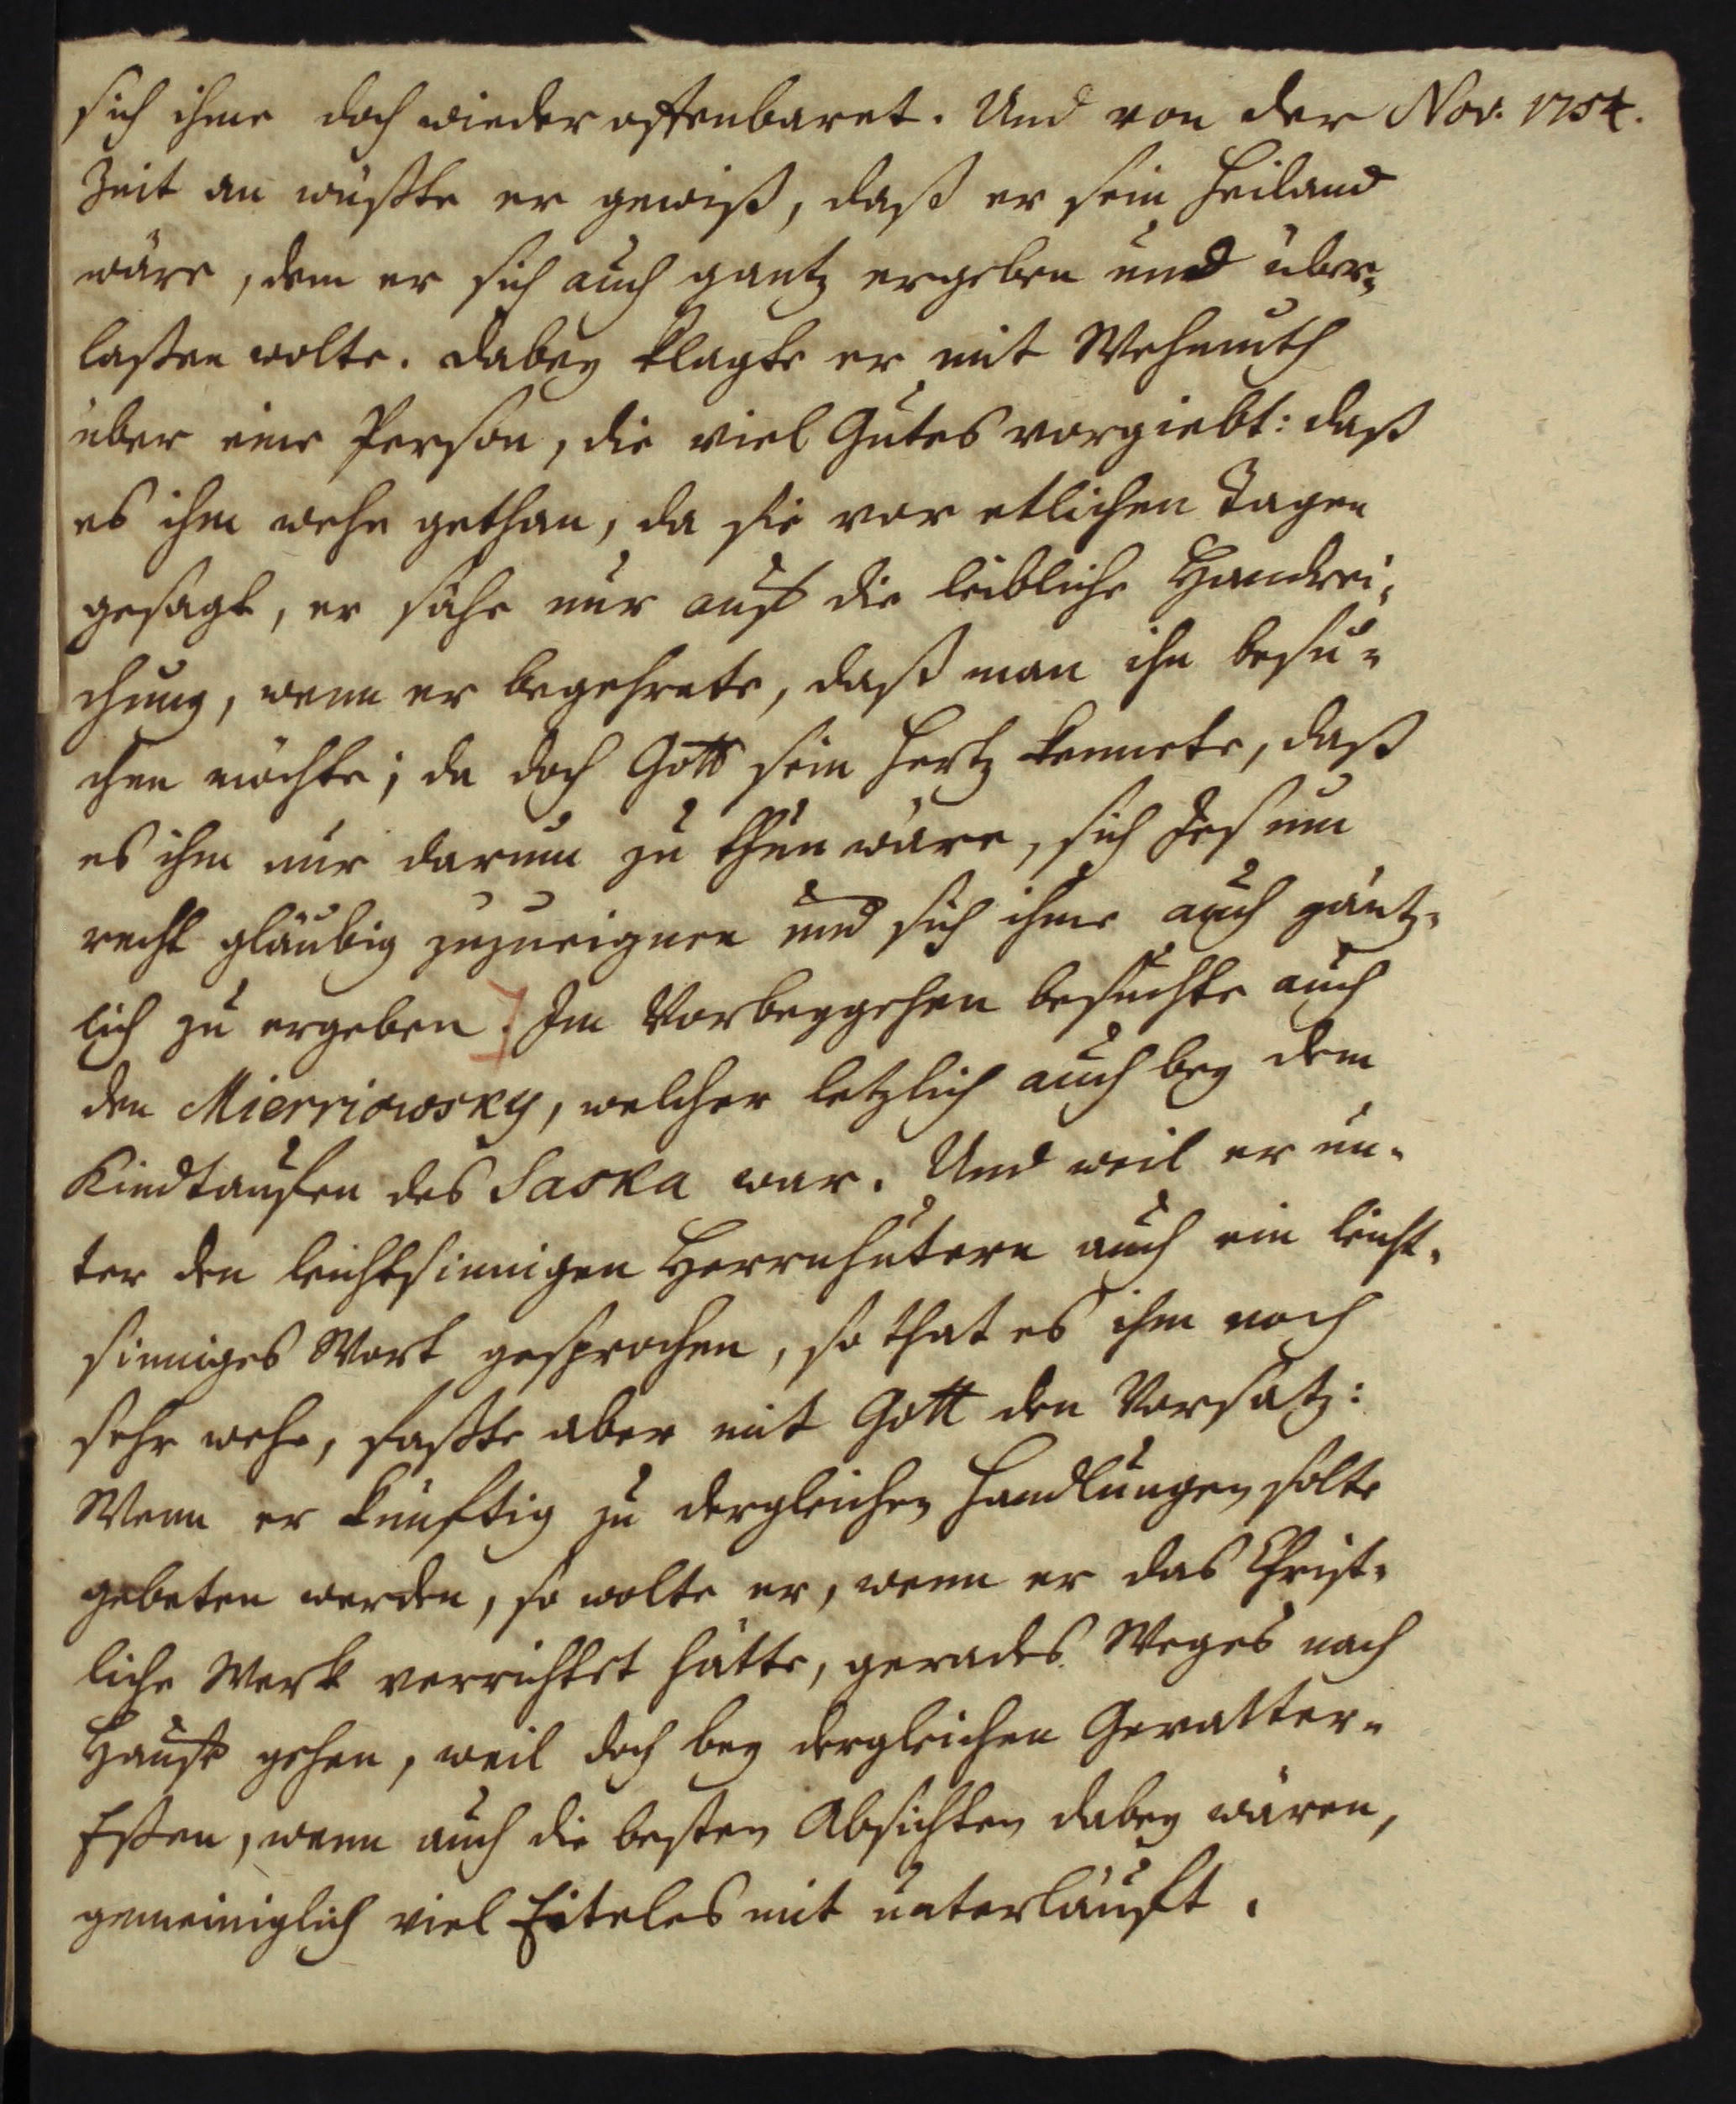 sich ihme doch wieder offenbaret. Und von der Nov. 1754.
Zeit an wüßte er gewiß, daß er sein Heiland
wäre, dem er sich auch gantz ergeben und über-
laßen wolte. Dabey klagte er mit Wehmuth
über eine Person, die viel Gutes vorgiebt: daß
es ihm wehe gethan, da sie vor etlichen Tagen
gesagt, er sähe nur auf die leibliche Handrei-
chung, wenn er begehrete, daß man ihn besu-
chen möchte; da doch Gott sein Hertz kennete, daß
es ihm nur darum zu thun wäre, sich Jesum
recht gläubig zuzueignen und sich ihme auch gäntz-
lich zu ergeben.] Im Vorbeygehen besuchte auch
den Mierriowsky, welcher letzlich auch bey dem
Kindtaufen des Saska war. Und weil er un-
ter den leichtsinnigen Herrnhutern auch ein leicht-
sinniges Wort gesprochen, so that es ihm noch
sehr wehe, faßte aber mit Gott den Vorsatz:
Wenn er künftig zu dergleichen Handlungen solte
gebeten werden, so wolte er, wenn er das Christ-
liche Werk verrichtet hätte, gerades Weges nach
Hause gehen, weil doch bey dergleichen Gevatter-
Eßen, wenn auch die besten Absichten dabey wären,
gemeiniglich viel Eiteles mit unterläuft.